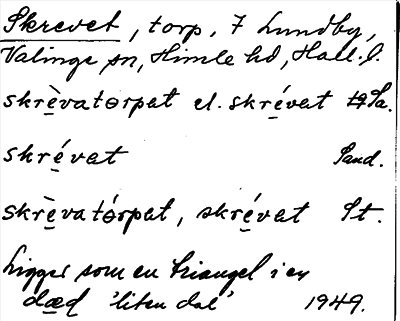 Skrevet, torp, 7 Lundby,
Valinge sn, Himle hd, Hall. l.
skrè̱vatɵrpat el. skré̱vat Sa.
skré̱vat Sand.
skrè̱vatɵ́rpat, skré̱vat St.
Ligger som en triangel i en
dæ̱d 'liten dal' 1949.